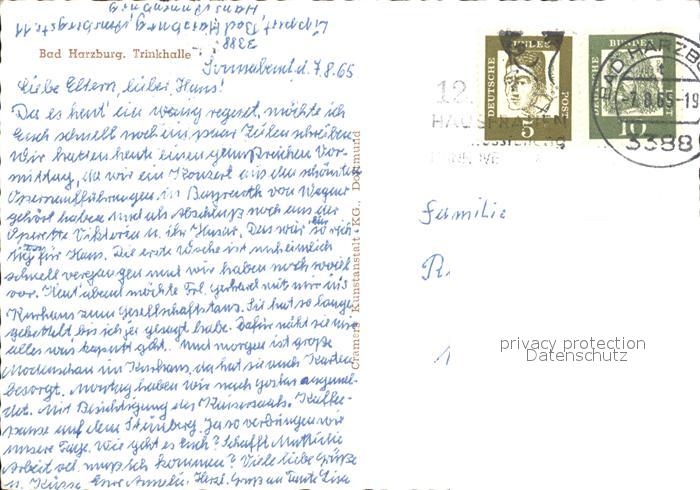 3388
Bad Harzburg, Trinkhalle
Sonnabend d. 7.8.65
Liebe Eltern, lieber Hans!
Da es heut' ein wenig regnet, möchte ich
Euch schnell noch ein paar Zeilen schreiben
Wir hatten heute einen genußreichen Vor-
mittag, da wir ein Konzert aus den schönsten
Opernaufführungen in Bayreuth von Wagner
gehört haben und als Abschluß noch aus der
Operette Viktoria u. ihr Husar. Das wär so rich-
tig für Hans. Die erste Woche ist unheimlich
schnell vergangen und wir haben noch soviel
vor. Heut' abend möchte Frl. Gerhard mit mir ins
Kurhaus zum Gesellschaftstanz. Sie hat so lange
gebettelt bis ich ja gesagt habe. Dafür näht sie mir
alles was kaputt geht. Und morgen ist große
Modenschau im Kurhaus, da hat sie noch Karten
besorgt. Montag haben wir nach Goslar angemel-
det. Mit Besichtigung des Kaisersaals. Kaffee-
pause auf dem Steinberg. Ja so verbringen wir
unsere Tage. Wie geht es Euch? Schafft Mutti die
Arbeit od. muß ich kommen? Viele liebe Grüße
u. Küsse Eure Annelie. Herzl. Gruß an Tante Lisa
Cramers Kunstanstalt KG., Dortmund
DEUTSCHE BUNDES POST
5
DEUTSCHE BUNDES POST
10
BAD HARZBURG
-7.8.65-19
3388
12.
HAUSFRAUEN
Ausstellung
Familie
R.
1
privacy protection
Datenschutz